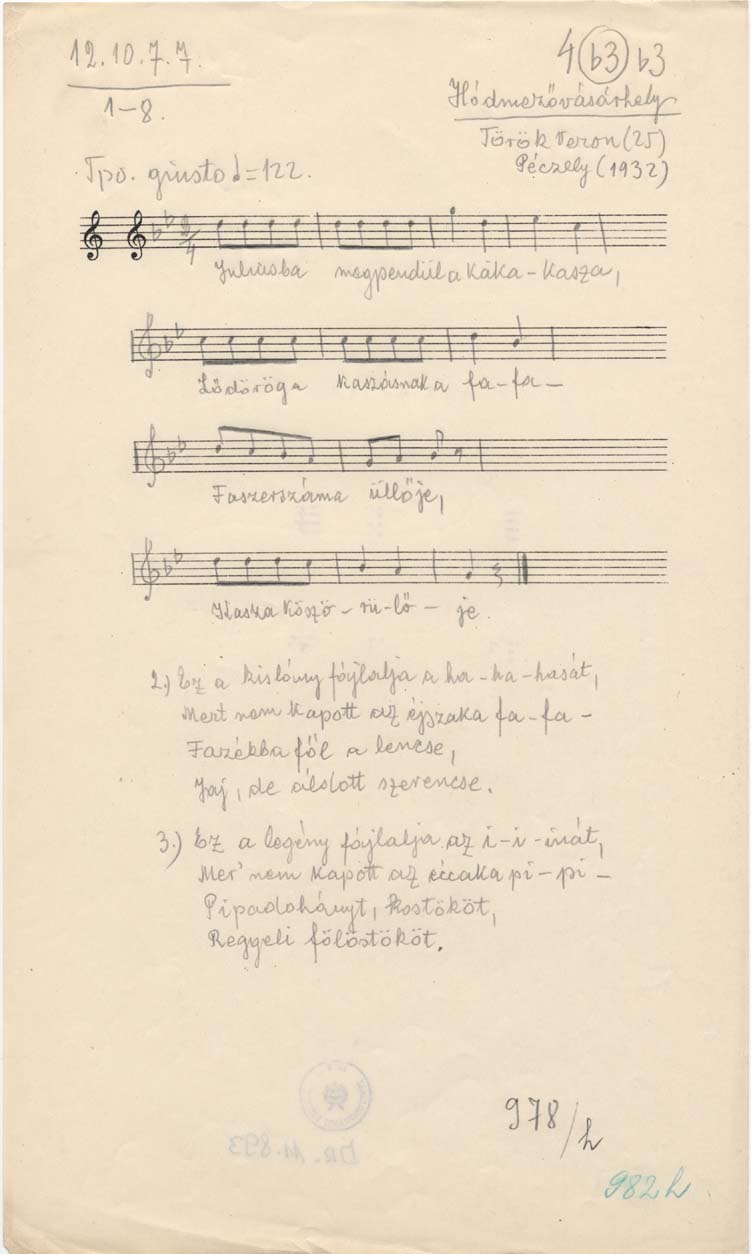 12.10.7.7.
1-8.
4 b3 b3
Hódmezővásárhely
Török Veron (25)
Péczely (1932)
Tpo. giusto ♩=122.
2/4
Juliusba megpendül a Káka-kasza,
Lődörög a Kaszásnak a fa-fa-
Faszerszáma üllője,
Kasza Köszö-rü-lő-je.
2.) Ez a kislány fájlalja a ha-ha-hasát,
Mert nem kapott az éjszaka fa-fa-
Fazékba fől a lencse,
Jaj, de áldott szerencse.
3.) Ez a legény fájlalja az i-i-inát,
Mer' nem kapott az éccaka pi-pi-
Pipadohányt, kostököt,
Reggeli fölöstököt.
BR. 11.893
978/h
982 h